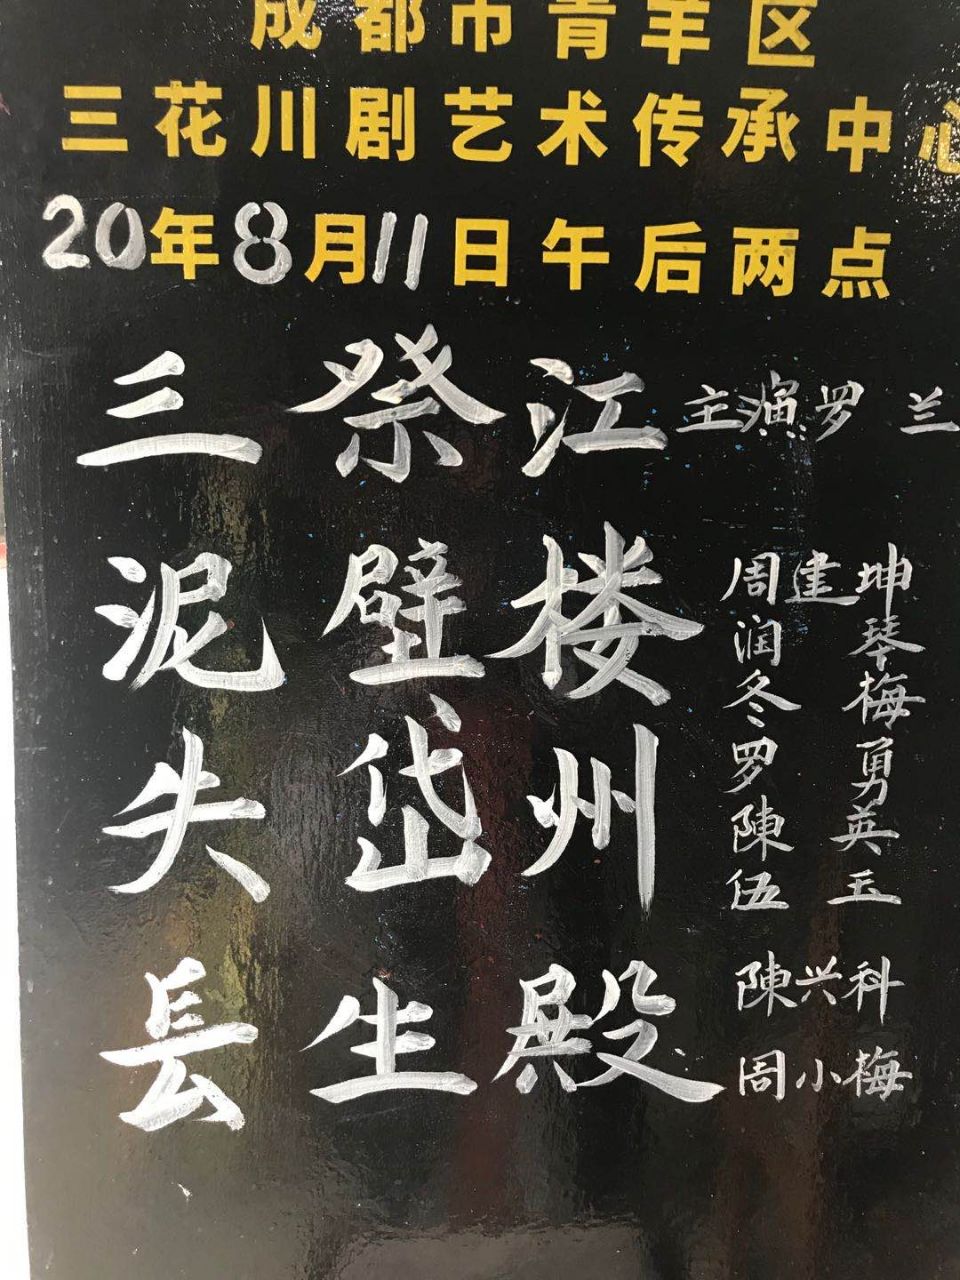 成都市青羊区
三花川剧艺术传承中心
20年8月11日午后两点
三祭江 主演 罗兰
泥壁楼 周建坤
润琴
冬梅
失岱州 罗勇
陳英
伍玉
長生殿 陳兴科
周小梅